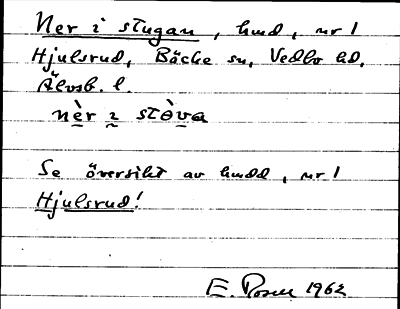 Ner i stugan, hmd, nr 1
Hjulsrud, Bäcke sn, Vedbo hd.
Älvsb. l.
nèr i stòva
Se översikt av hmdd, nr 1
Hjulsrud!
E. Rosén 1962